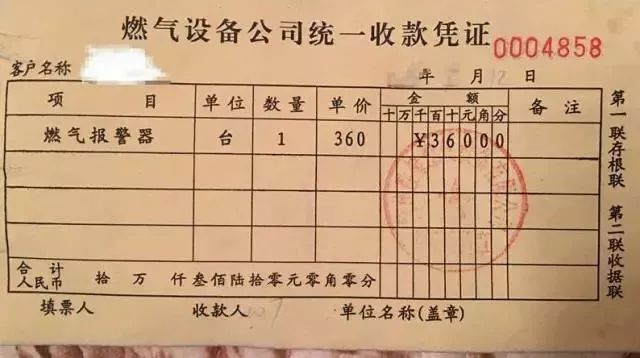 燃气设备公司统一收款凭证 0004858
客户名称 年 月 12 日
项 目 单位 数量 单价 金 额 备注
十万千百十元角分
燃气报警器 台 1 360 ¥36000
合计人民币 拾 万 仟叁佰陆拾零元零角零分
填票人 收款人 单位名称(盖章)
第一联存根联 第二联收据联